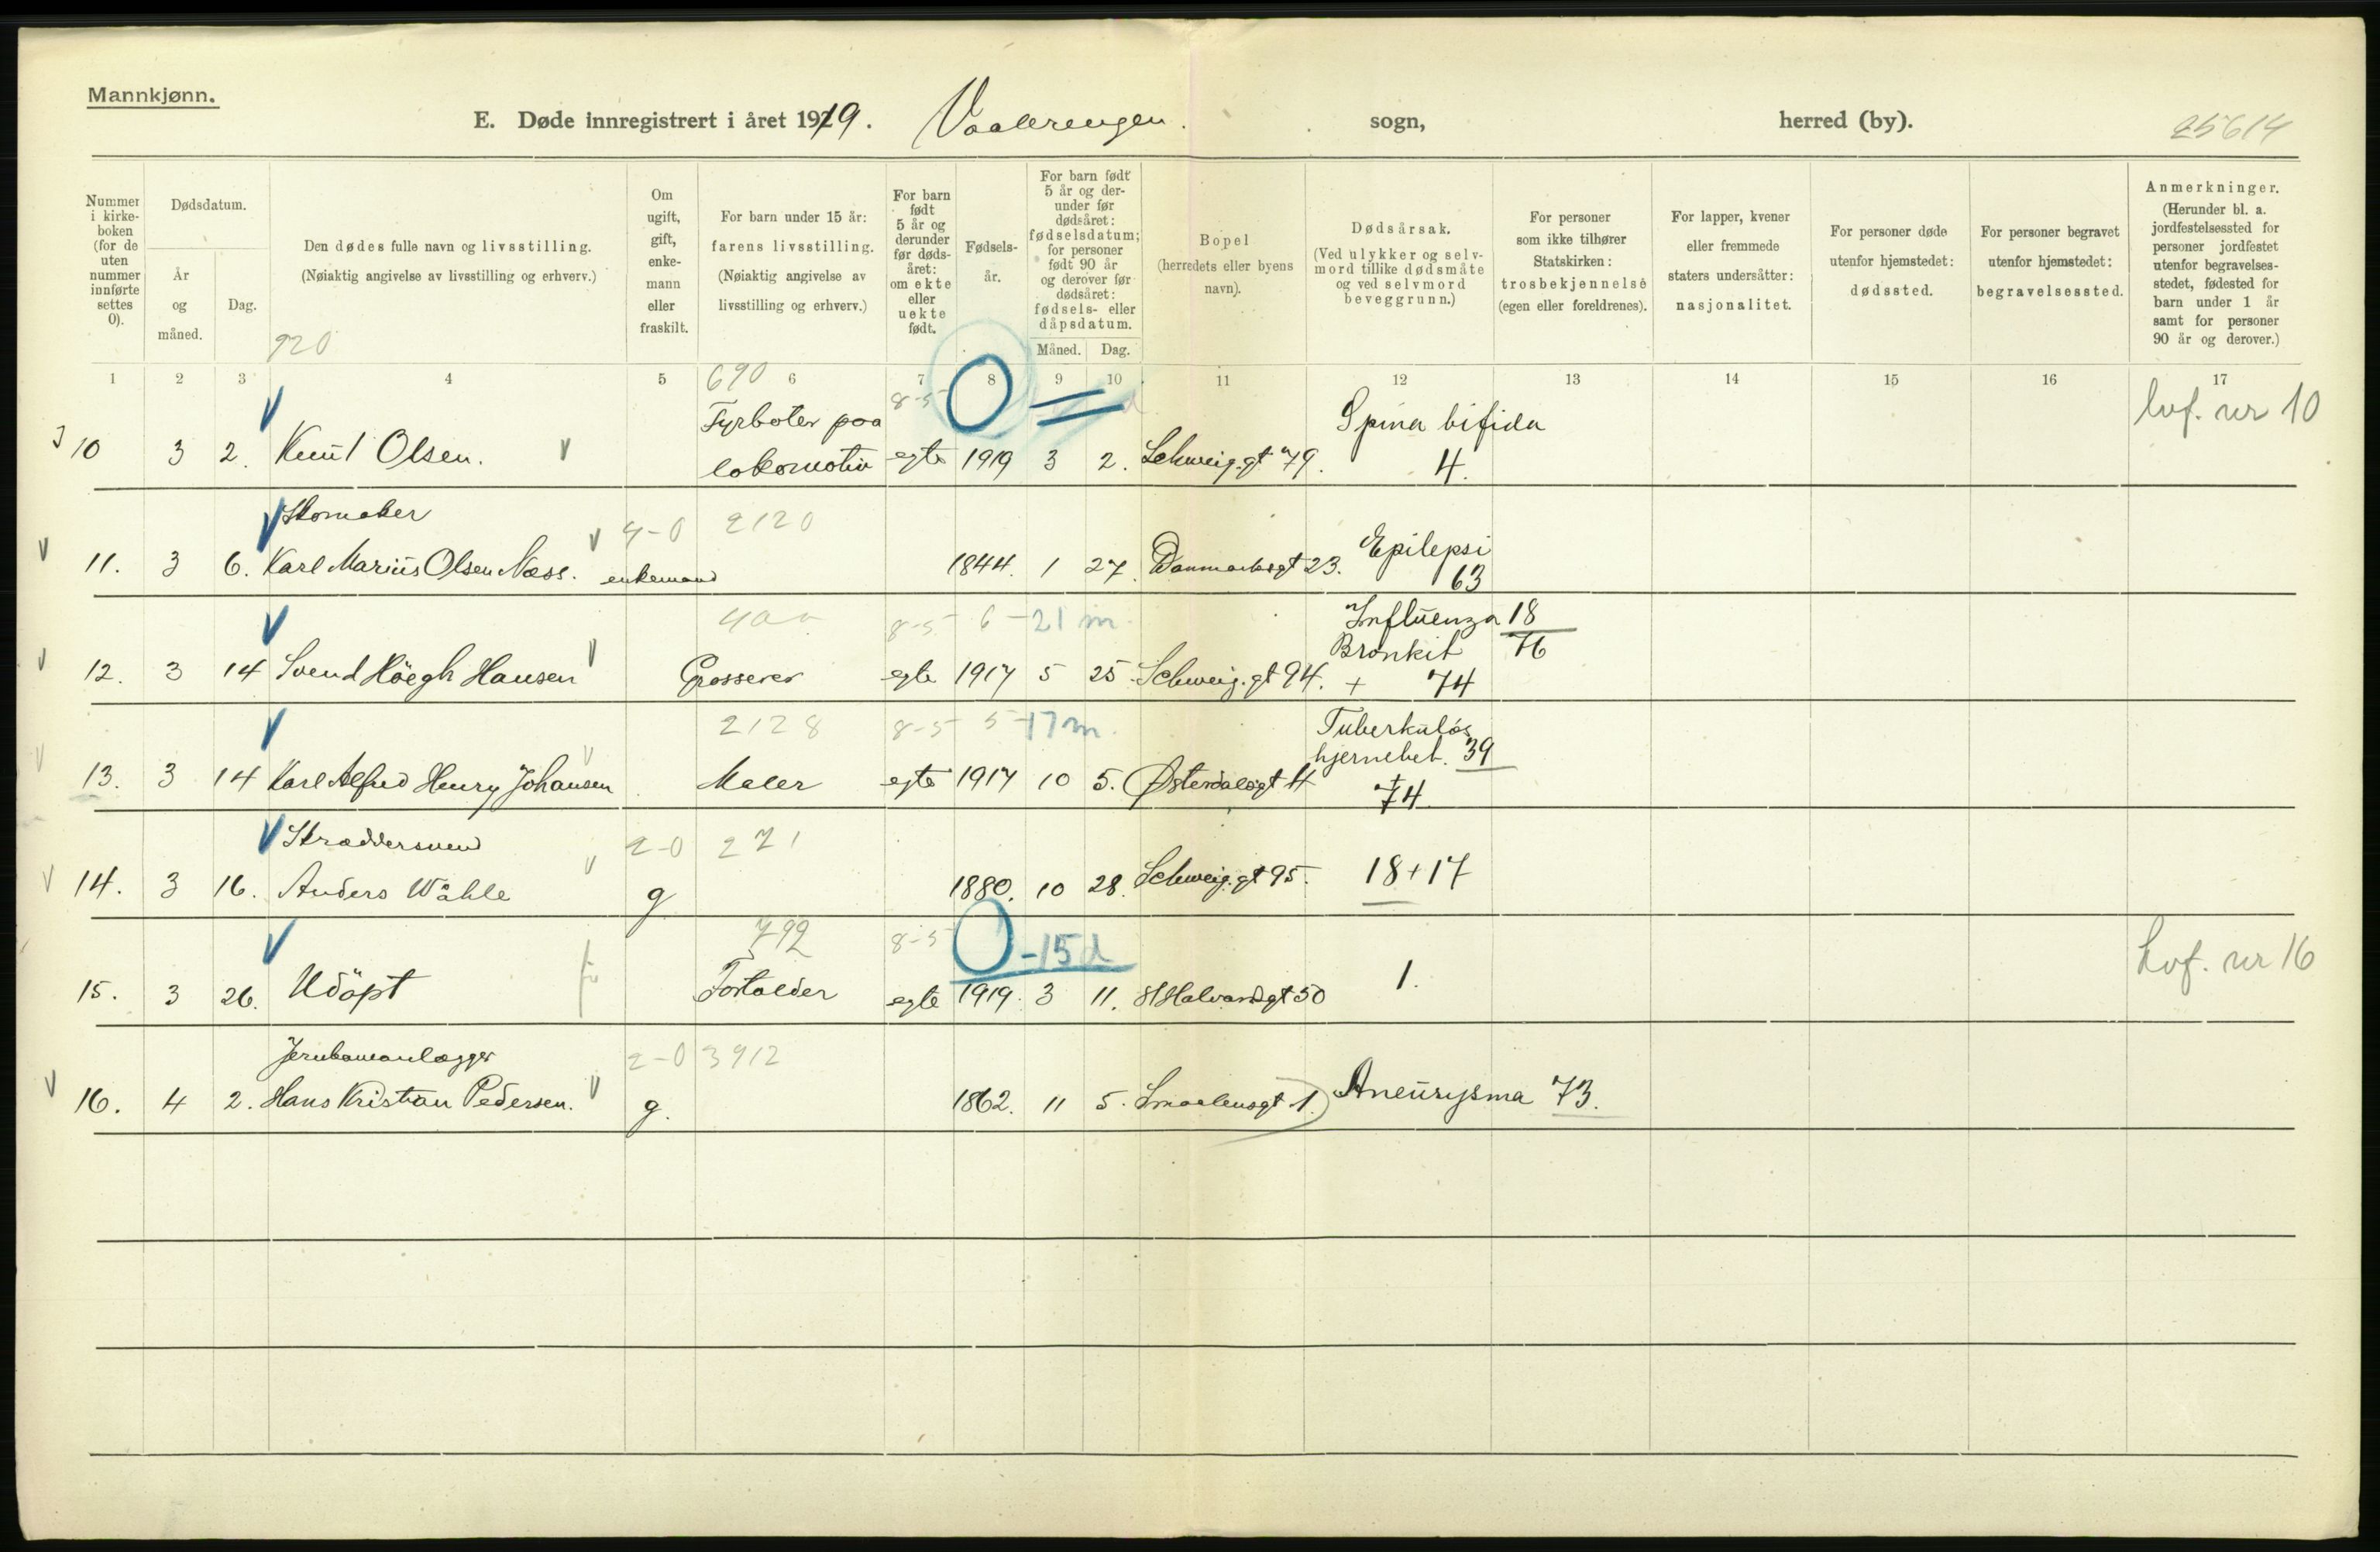 Mannkjønn.
E. Døde innregistrert i året 1919. Vaalerengen. sogn, herred (by). 25614
Nummer i kirkeboken (for de uten nummer innførte settes 0).
Dødsdatum.
År og måned.
Dag.
Den dødes fulle navn og livsstilling.
(Nøiaktig angivelse av livsstilling og erhverv.)
920
Om ugift, gift, enkemann eller fraskilt.
For barn under 15 år:
farens livsstilling.
(Nøiaktig angivelse av livsstilling og erhverv.)
For barn født 5 år og derunder før dødsåret: om ekte eller uekte født.
Fødselsår.
For barn født 5 år og derunder før dødsåret: fødselsdatum; for personer født 90 år og derover før dødsåret: fødsels- eller dåpsdatum.
Måned. Dag.
Bopel
(herredets eller byens navn).
Dødsårsak.
(Ved ulykker og selvmord tillike dødsmåte og ved selvmord beveggrunn.)
For personer som ikke tilhører Statskirken:
trosbekjennelse
(egen eller foreldrenes).
For lapper, kvener eller fremmede staters undersåtter:
nasjonalitet.
For personer døde utenfor hjemstedet:
dødssted.
For personer begravet utenfor hjemstedet:
begravelsessted.
Anmerkninger.
(Herunder bl. a. jordfestelsessted for personer jordfestet utenfor begravelsesstedet, fødested for barn under 1 år samt for personer 90 år og derover.)
1 2 3 4 5 6 7 8 9 10 11 12 13 14 15 16 17
690 8-5 0
Fyrbøter paa Spina bifida lvf. nr 10
10 3 2. Knut Olsen. lokomotiv egte 1919 3 2. Schweig.gt 79. 4.
Skomaker 4-0 2120
11. 3 6. Karl Marius Olsen Næss. enkemand 1844. 1 27. Danmarksgt 23. Epilepsi 63
8-5 6 -21 m. Influenza 18
Bronkit 76
12. 3 14 Svend Höegh Hansen Grosserer egte 1917 5 25. Schweig.gt 94. + 74
2128 8-5 5 -17 m. Tuberkuløs
hjernebet. 39
13. 3 14 Karl Alfred Henry Johansen Maler egte 1917 10 5. Østerdalsgt 4 + 74
Skræddersvend 2-0 271
14. 3 16. Anders Wåhle g 1880. 10 28. Schweig.gt 95. 18+17
792 8-5 0 -15 d lvf. nr 16
15. 3 26. Udöpt Fortolder egte 1919. 3 11. St Halvardsgt 50 1.
Jernbaneanlægger 2-0 3912
16. 4 2. Hans Kristian Pedersen. g. 1862. 11 5. Smaalensgt 1. Aneurysma 73.